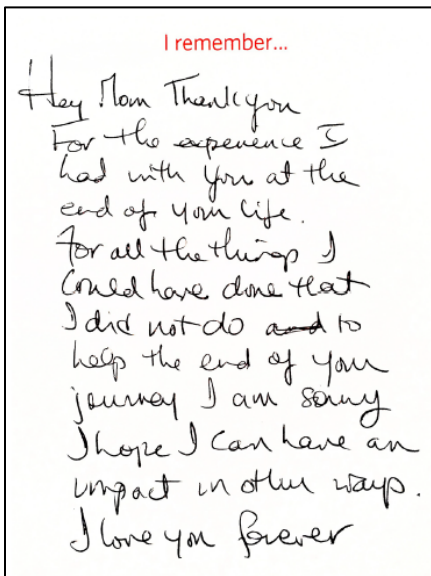 I remember...
Hey Mom Thank you
For the experience I
had with you at the
end of your life.
For all the things I
Could have done that
I did not do and to
help the end of your
journey I am sorry
I hope I can have an
impact in other ways.
I love you forever